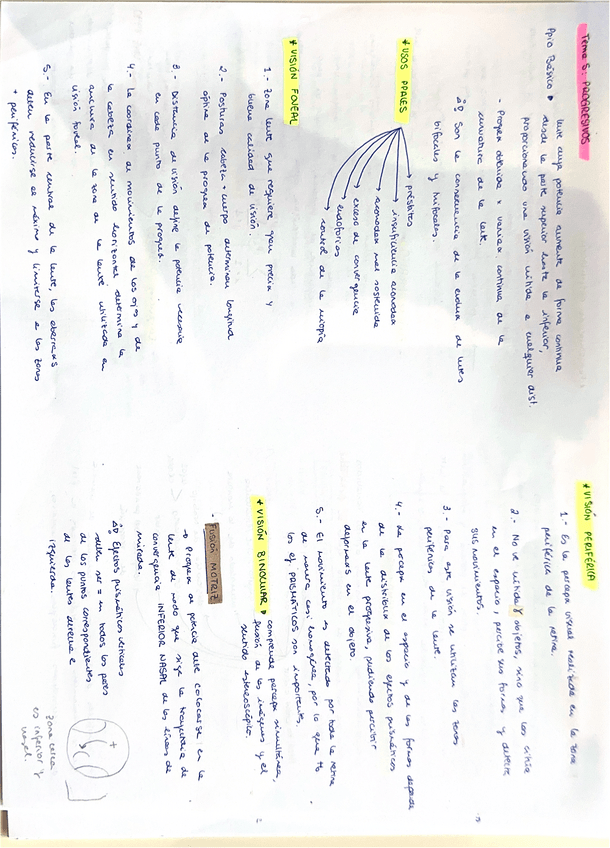 Tema 5: PROGRESIVOS
Ppio Básico → lente cuya potencia aumenta de forma continua
desde la parte superior hasta la inferior,
proporcionando una visión nítida a cualquier dist.
- Progresⁿ obtenida x variacⁿ continua de la
curvatura de la lente
Son la consecuencia de la evoluⁿ de lentes
bifocales y trifocales.
* USOS PPALES
présbitas
insuficiencia acomodaⁿ
acomodaⁿ mal sostenida
exceso de convergencia
endoforias
control de la miopía
* VISIÓN FOVEAL
1.- Zona lente que requiere gran precisⁿ y
buena calidad de visión.
2.- Posturas cabeza + cuerpo determinan longitud
óptima de la progresⁿ de potencia.
3.- Distancia de visión define la potencia necesaria
en cada punto de la progresⁿ.
4.- La coordinaⁿ de movimientos de los ojos y de
la cabeza en sentido horizontal determina la
anchura de la zona de la lente utilizada en
visión foveal.
5.- En la parte central de la lente, las aberraⁿˢ
deben reducirse al máximo y limitarse a las zonas
+ periféricas.
* VISIÓN PERIFÉRICA
1.- Es la percepⁿ visual realizada en la zona
periférica de la retina.
2.- No ve nítido objetos, sino que los sitúa
en el espacio, percibe sus formas y detecta
sus movimientos.
3.- Para esta visión se utilizan las zonas
periféricas de la lente.
4.- La percepⁿ en el espacio y de las formas depende
de la distribuⁿ de los efectos prismáticos
en la lente progresiva, pudiendo percibir
deformaⁿˢ en el objeto.
5.- El movimiento es detectado por toda la retina
de manera casi homogénea, por lo que tb
los ef PRISMÁTICOS son importantes.
* VISIÓN BINOCULAR → comprende percepⁿ simultánea,
fusión de las imágenes y el
sentido estereoscópico.
- FUSIÓN MOTRIZ
→ Progresⁿ de potencia debe colocarse en la
lente de modo que siga la trayectoria de
convergencia INFERIOR NASAL de las líneas de
mirada.
Efectos prismáticos verticales
deben ser = en todos los pares
de los puntos correspondientes
de las lentes derecha e
izquierda.
+
Zona cerca
es inferior y
nasal.